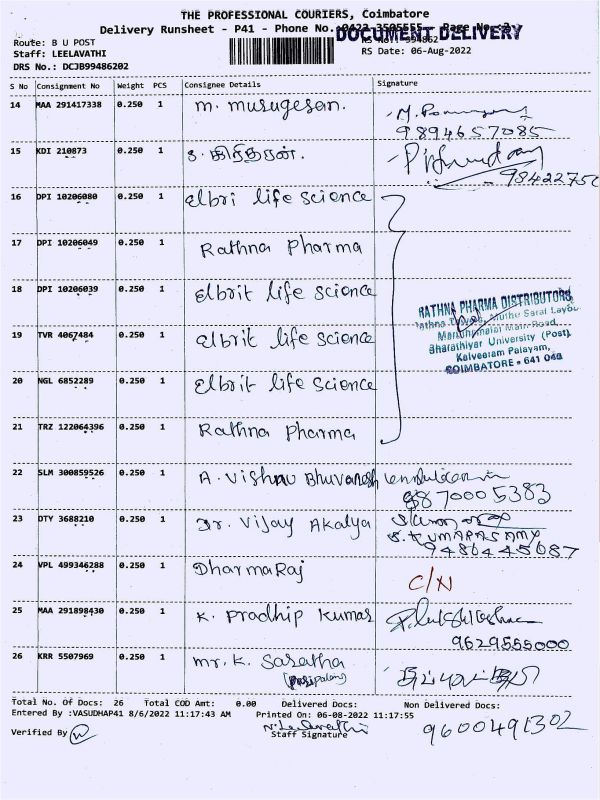 THE PROFESSIONAL COURIERS, Coimbatore
Delivery Runsheet - P41 - Phone No.:0422 3505555 Page No:2
DOCUMENT DELIVERY
Route: B U POST
RS No.: 994862
Staff: LEELAVATHI
RS Date: 06-Aug-2022
DRS No.: DCJB99486202
S No Consignment No Weight PCS Consignee Details Signature
14 MAA 291417338 0.250 1 M. Murugesan.
9894657085
15 KDI 210873 0.250 1 S. கிரிதரன்.
98422750
16 DPI 10206080 0.250 1 elbri life science
17 DPI 10206049 0.250 1 Rathna Pharma
18 DPI 10206039 0.250 1 elbrit life science
RATHNA PHARMA DISTRIBUTORS
Rathna Muthu Saral Layou
19 TVR 4067484 0.250 1 elbrit life science
Maruthamalai Main Road,
Bharathiyar University (Post)
Kalveeram Palayam,
COIMBATORE - 641 046
20 NGL 6852289 0.250 1 elbrit life science
21 TRZ 122064396 0.250 1 Rathna Pharma
22 SLM 300859526 0.250 1 A. Vishnu Bhuvanesh
8870005383
23 DTY 3688210 0.250 1 Dr. Vijay Akalya
S. KUMARASAMY
9486445687
24 VPL 499346288 0.250 1 DharmaRaj C/N
25 MAA 291898430 0.250 1 K. Pradhip Kumar
9629555000
26 KRR 5507969 0.250 1 Mr. K. Saratha
Total No. Of Docs: 26 Total COD Amt: 0.00 Delivered Docs: Non Delivered Docs:
Entered By :VASUDHAP41 8/6/2022 11:17:43 AM Printed On: 06-08-2022 11:17:55
N. Leelavathi
9600491302
Verified By Staff Signature